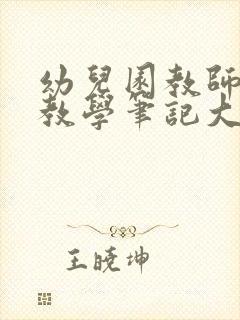 幼兒園教師
教學筆記大
王曉坤